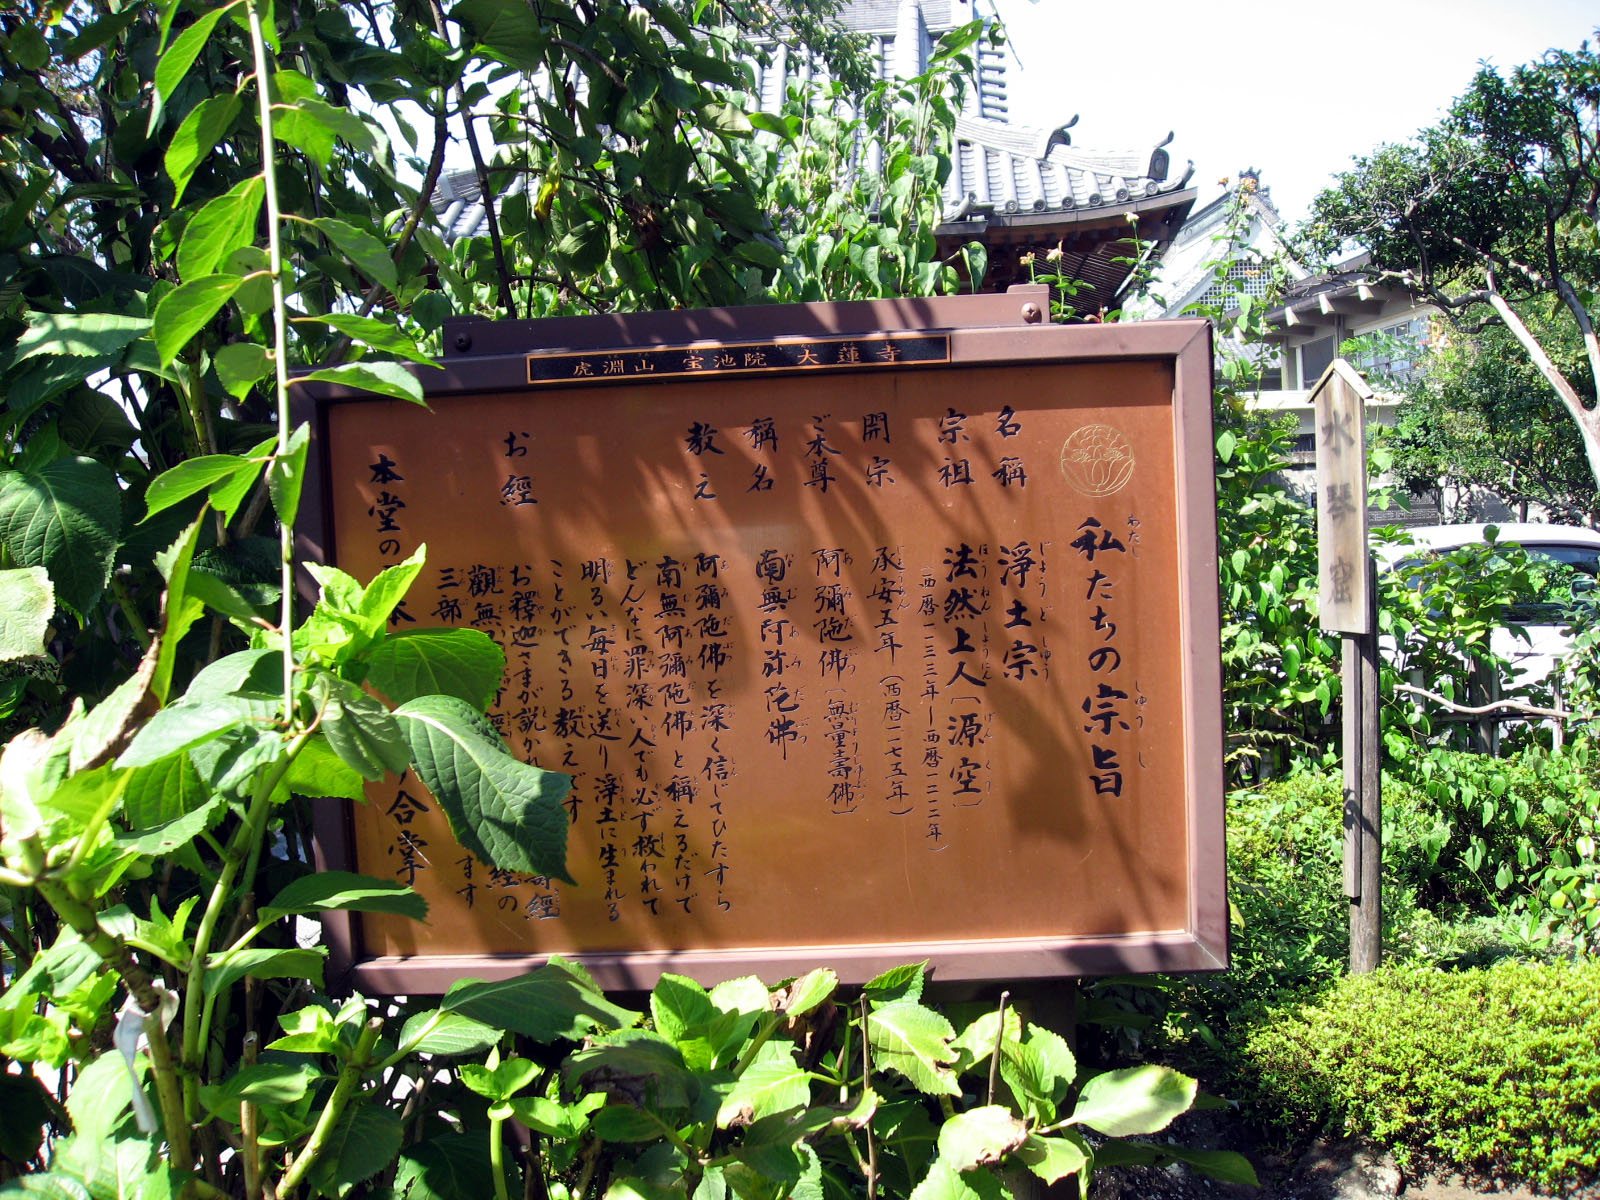 虎淵山 宝池院 大蓮寺
私たちの宗旨
名稱 淨土宗
宗祖 法然上人〔源空〕
（西暦一一三三年－西暦一二一二年）
開宗 承安五年（西暦一一七五年）
ご本尊 阿彌陁佛〔無量壽佛〕
稱名 南無阿弥陀佛
教え 阿彌陁佛を深く信じてひたすら
南無阿彌陁佛と稱えるだけで
どんなに罪深い人でも必ず救われて
明るい毎日を送り淨土に生まれる
ことができる教えです
お經 お釋迦さまが説かれ 經
觀無 經の
三部 ます
本堂の 合掌
水琴窟